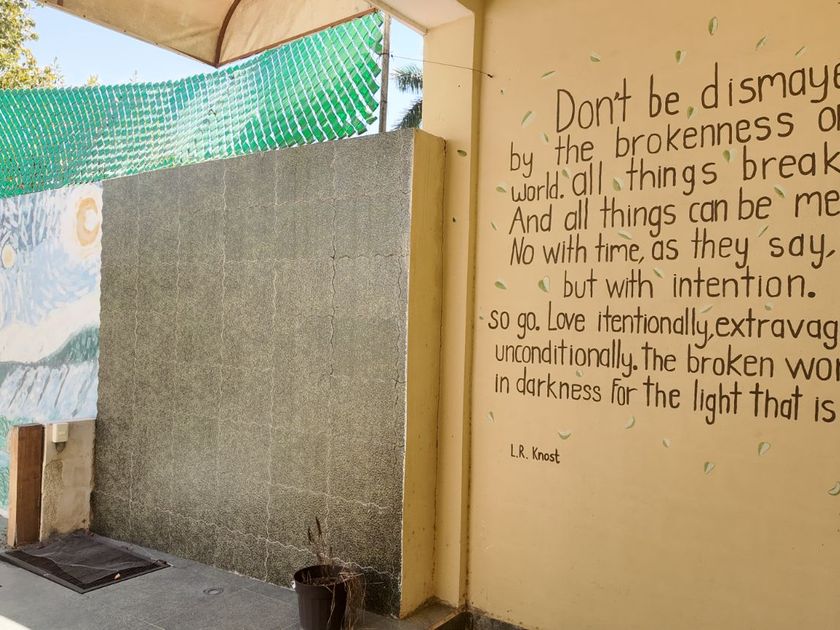 Don't be dismaye
by the brokenness o
world. all things break
And all things can be me
No with time, as they say,
but with intention.
so go. Love itentionally, extravag
unconditionally. The broken wor
in darkness for the light that is
L.R. Knost